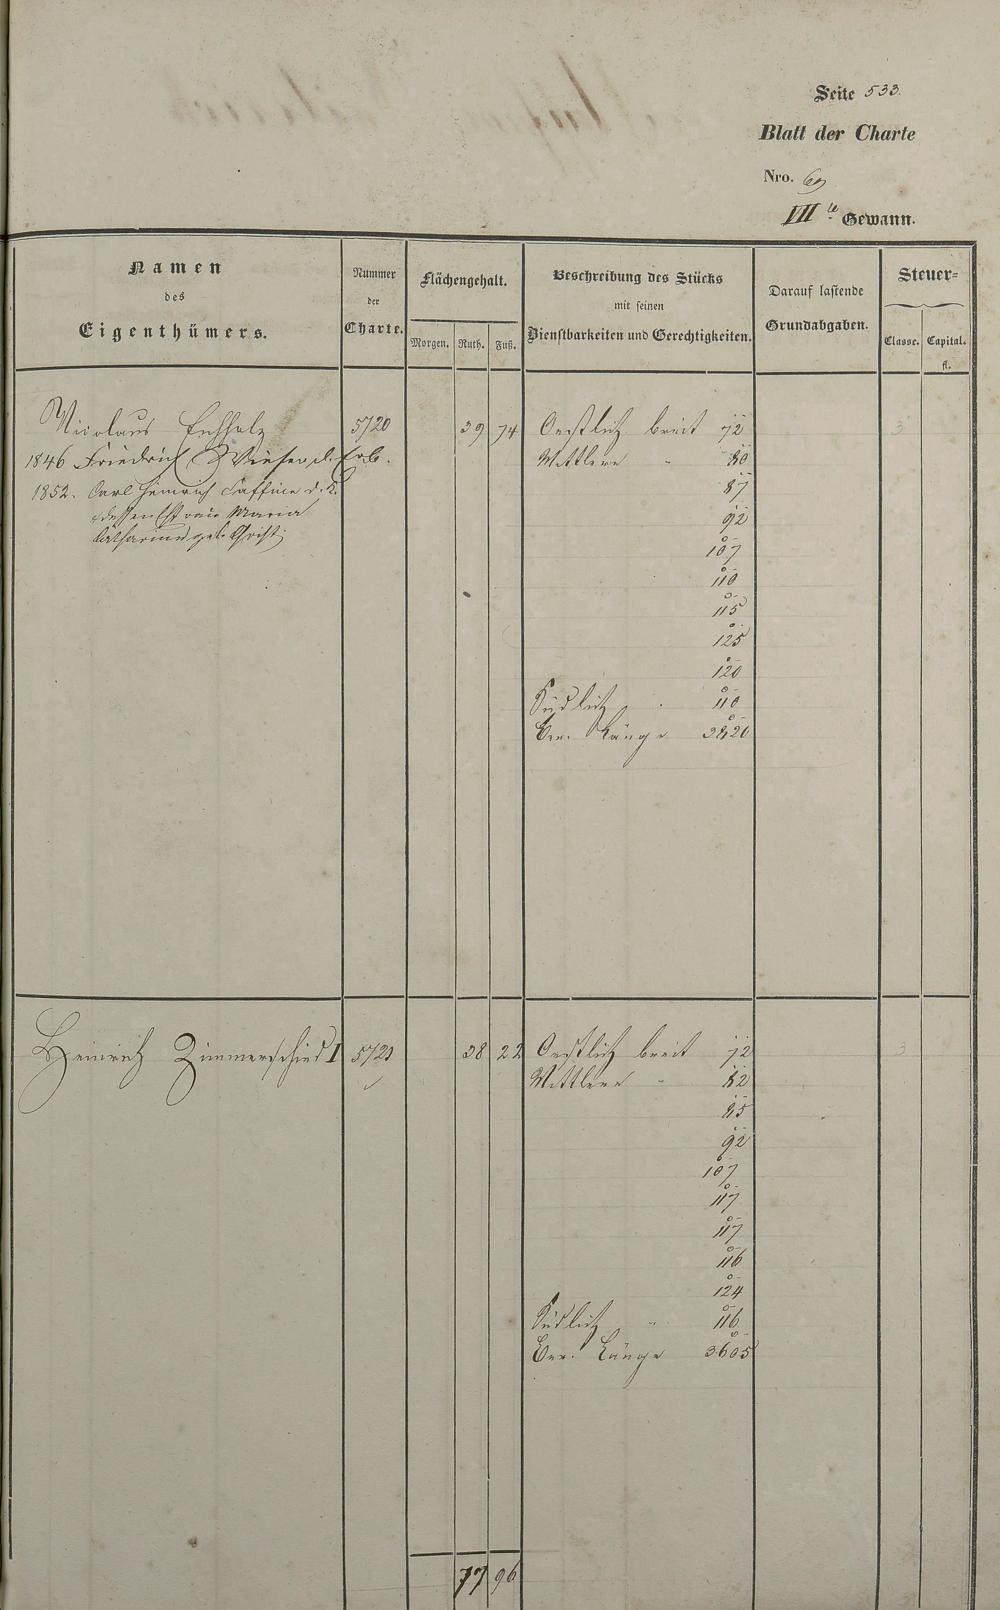 Seite 533.
Blatt der Charte
Nro. 69
VII te Gewann.
Namen
des
Eigenthümers.
Nummer
der
Charte.
Flächengehalt.
Morgen. Ruth. Fuß.
Beschreibung des Stücks
mit seinen
Dienstbarkeiten und Gerechtigkeiten.
Darauf lastende
Grundabgaben.
Steuer-
Classe. Capital.
fl.
Nicolaus 5720 39 74 Oestlich breit 72 3
1846 Friedrich Wiesen d. Erb. Mittlere " 80
1852. Carl Heinrich Caffine d. K. 87
dessen Ehefrau Maria 92
Catharina geb. Christ 107
110
115
125
120
Südlich " 110
Ver. Länge 3820
Heinrich Zimmerschied I 5721 38 22 Oestlich breit 72 3
Mittlere " 82
85
92
107
117
117
116
124
Südlich " 116
Ver. Länge 3605
77 96